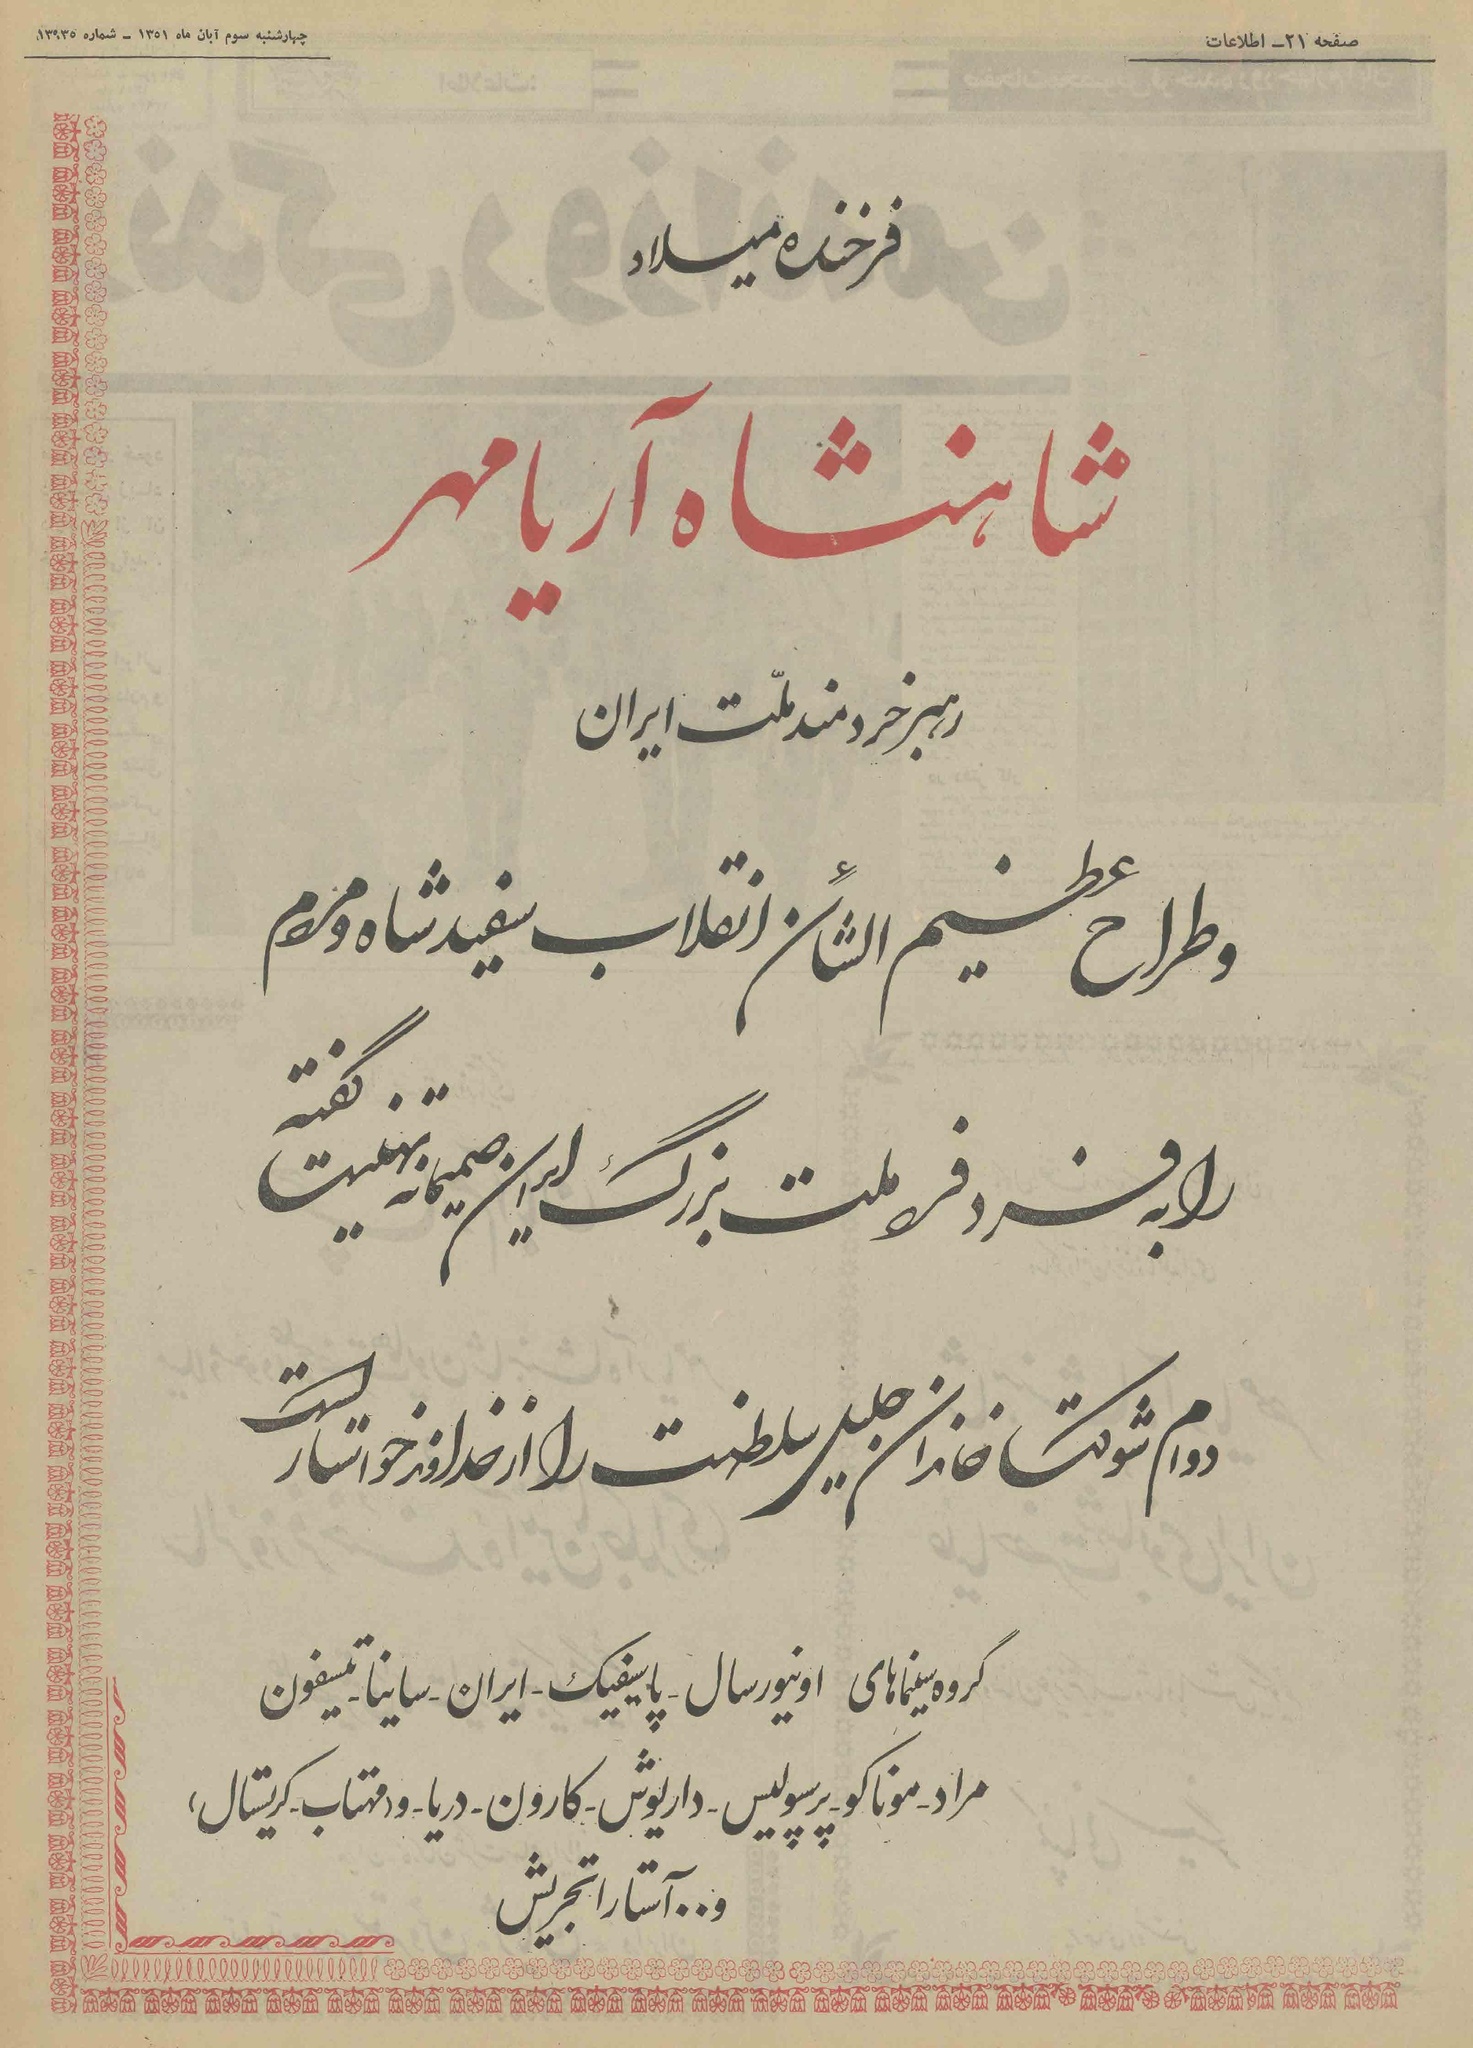 صفحه ۲۱ـ اطلاعات
چهارشنبه سوم آبان ماه ۱۳۵۱ ـ شماره ۱۳۹۳۵
فرخنده میلاد
شاهنشاه آریامهر
رهبر خردمند ملّت ایران
وطراح عظیم الشأن انقلاب سفید شاه و مردم
را به فرد فرد ملت بزرگ ایران صمیمانه تهنیت گفته
دوام شوکت خاندان جلیل سلطنت را از خداوند خواستار است
گروه سینماهای اونیورسال ـ پاسیفیک ـ ایران ـ ساینا ـ تیسفون
مراد ـ موناکو ـ پرسپولیس ـ داریوش ـ کارون ـ دریا ـ و،مهتاب ـ کریستال،
و۰۰آستارا تجریش